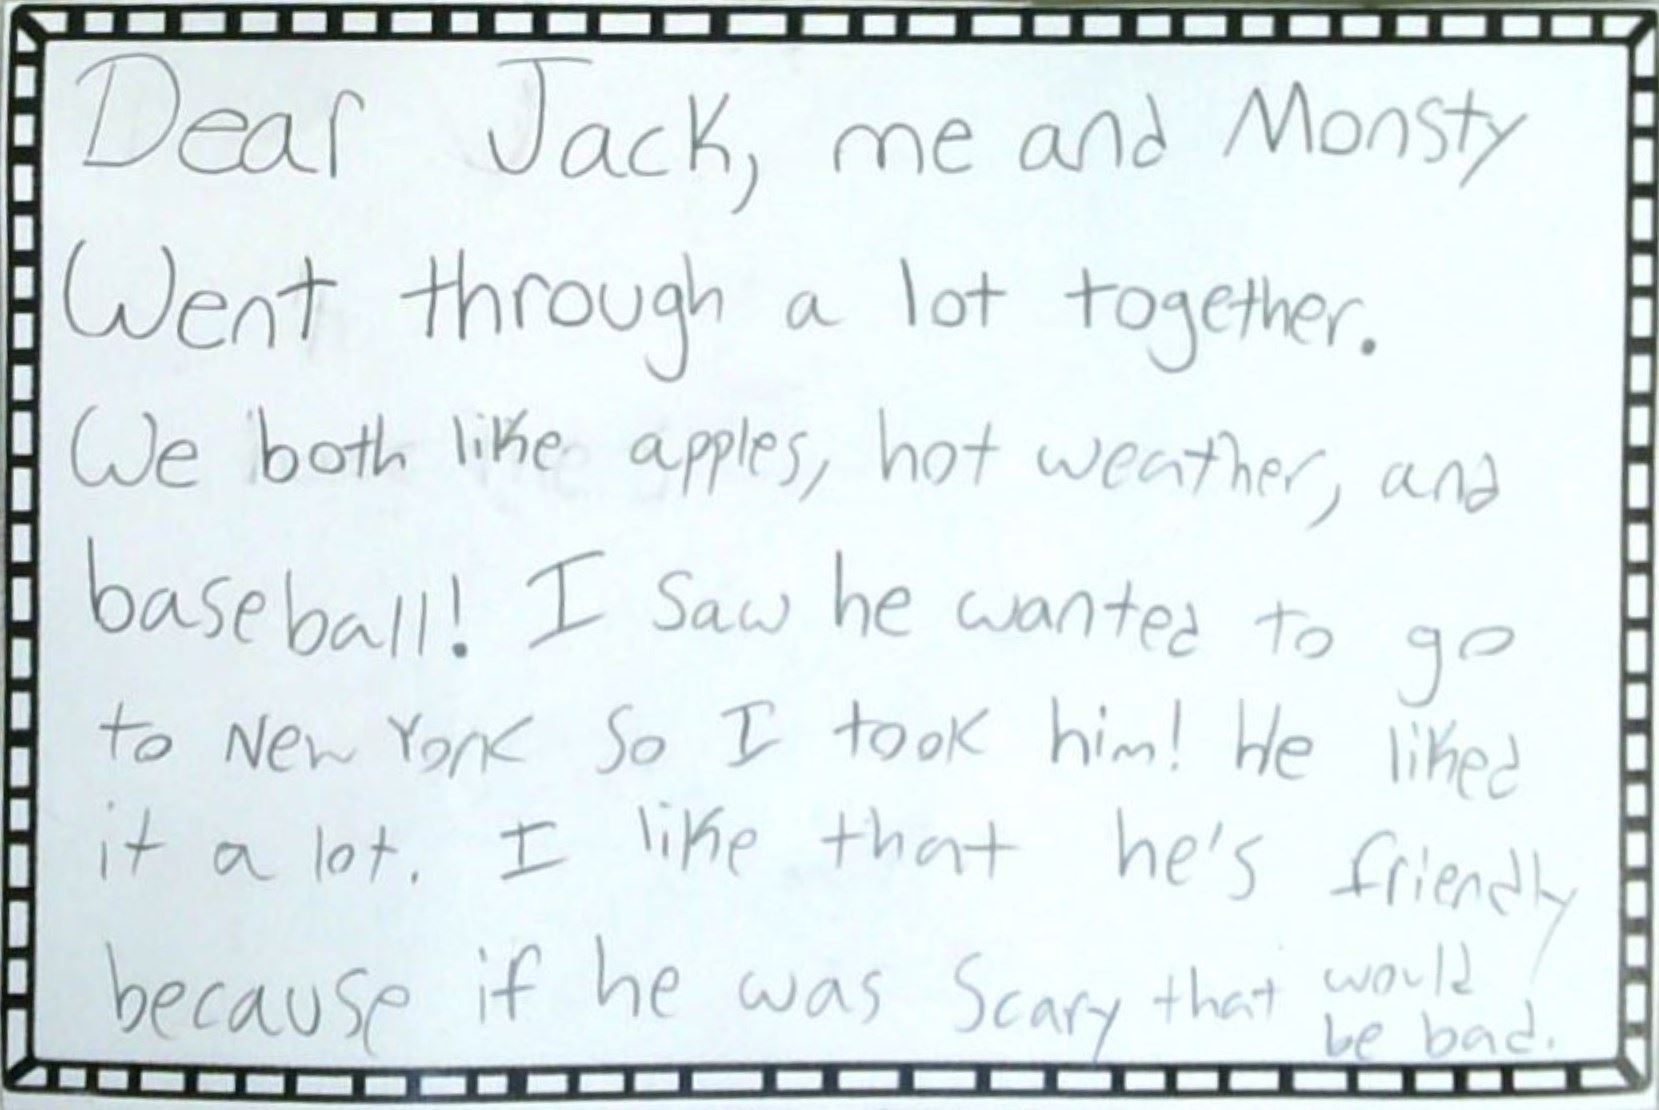 Dear Jack, me and Monsty
Went through a lot together.
We both like apples, hot weather, and
baseball! I saw he wanted to go
to New York so I took him! He liked
it a lot. I like that he's friendly
because if he was scary that would
be bad.